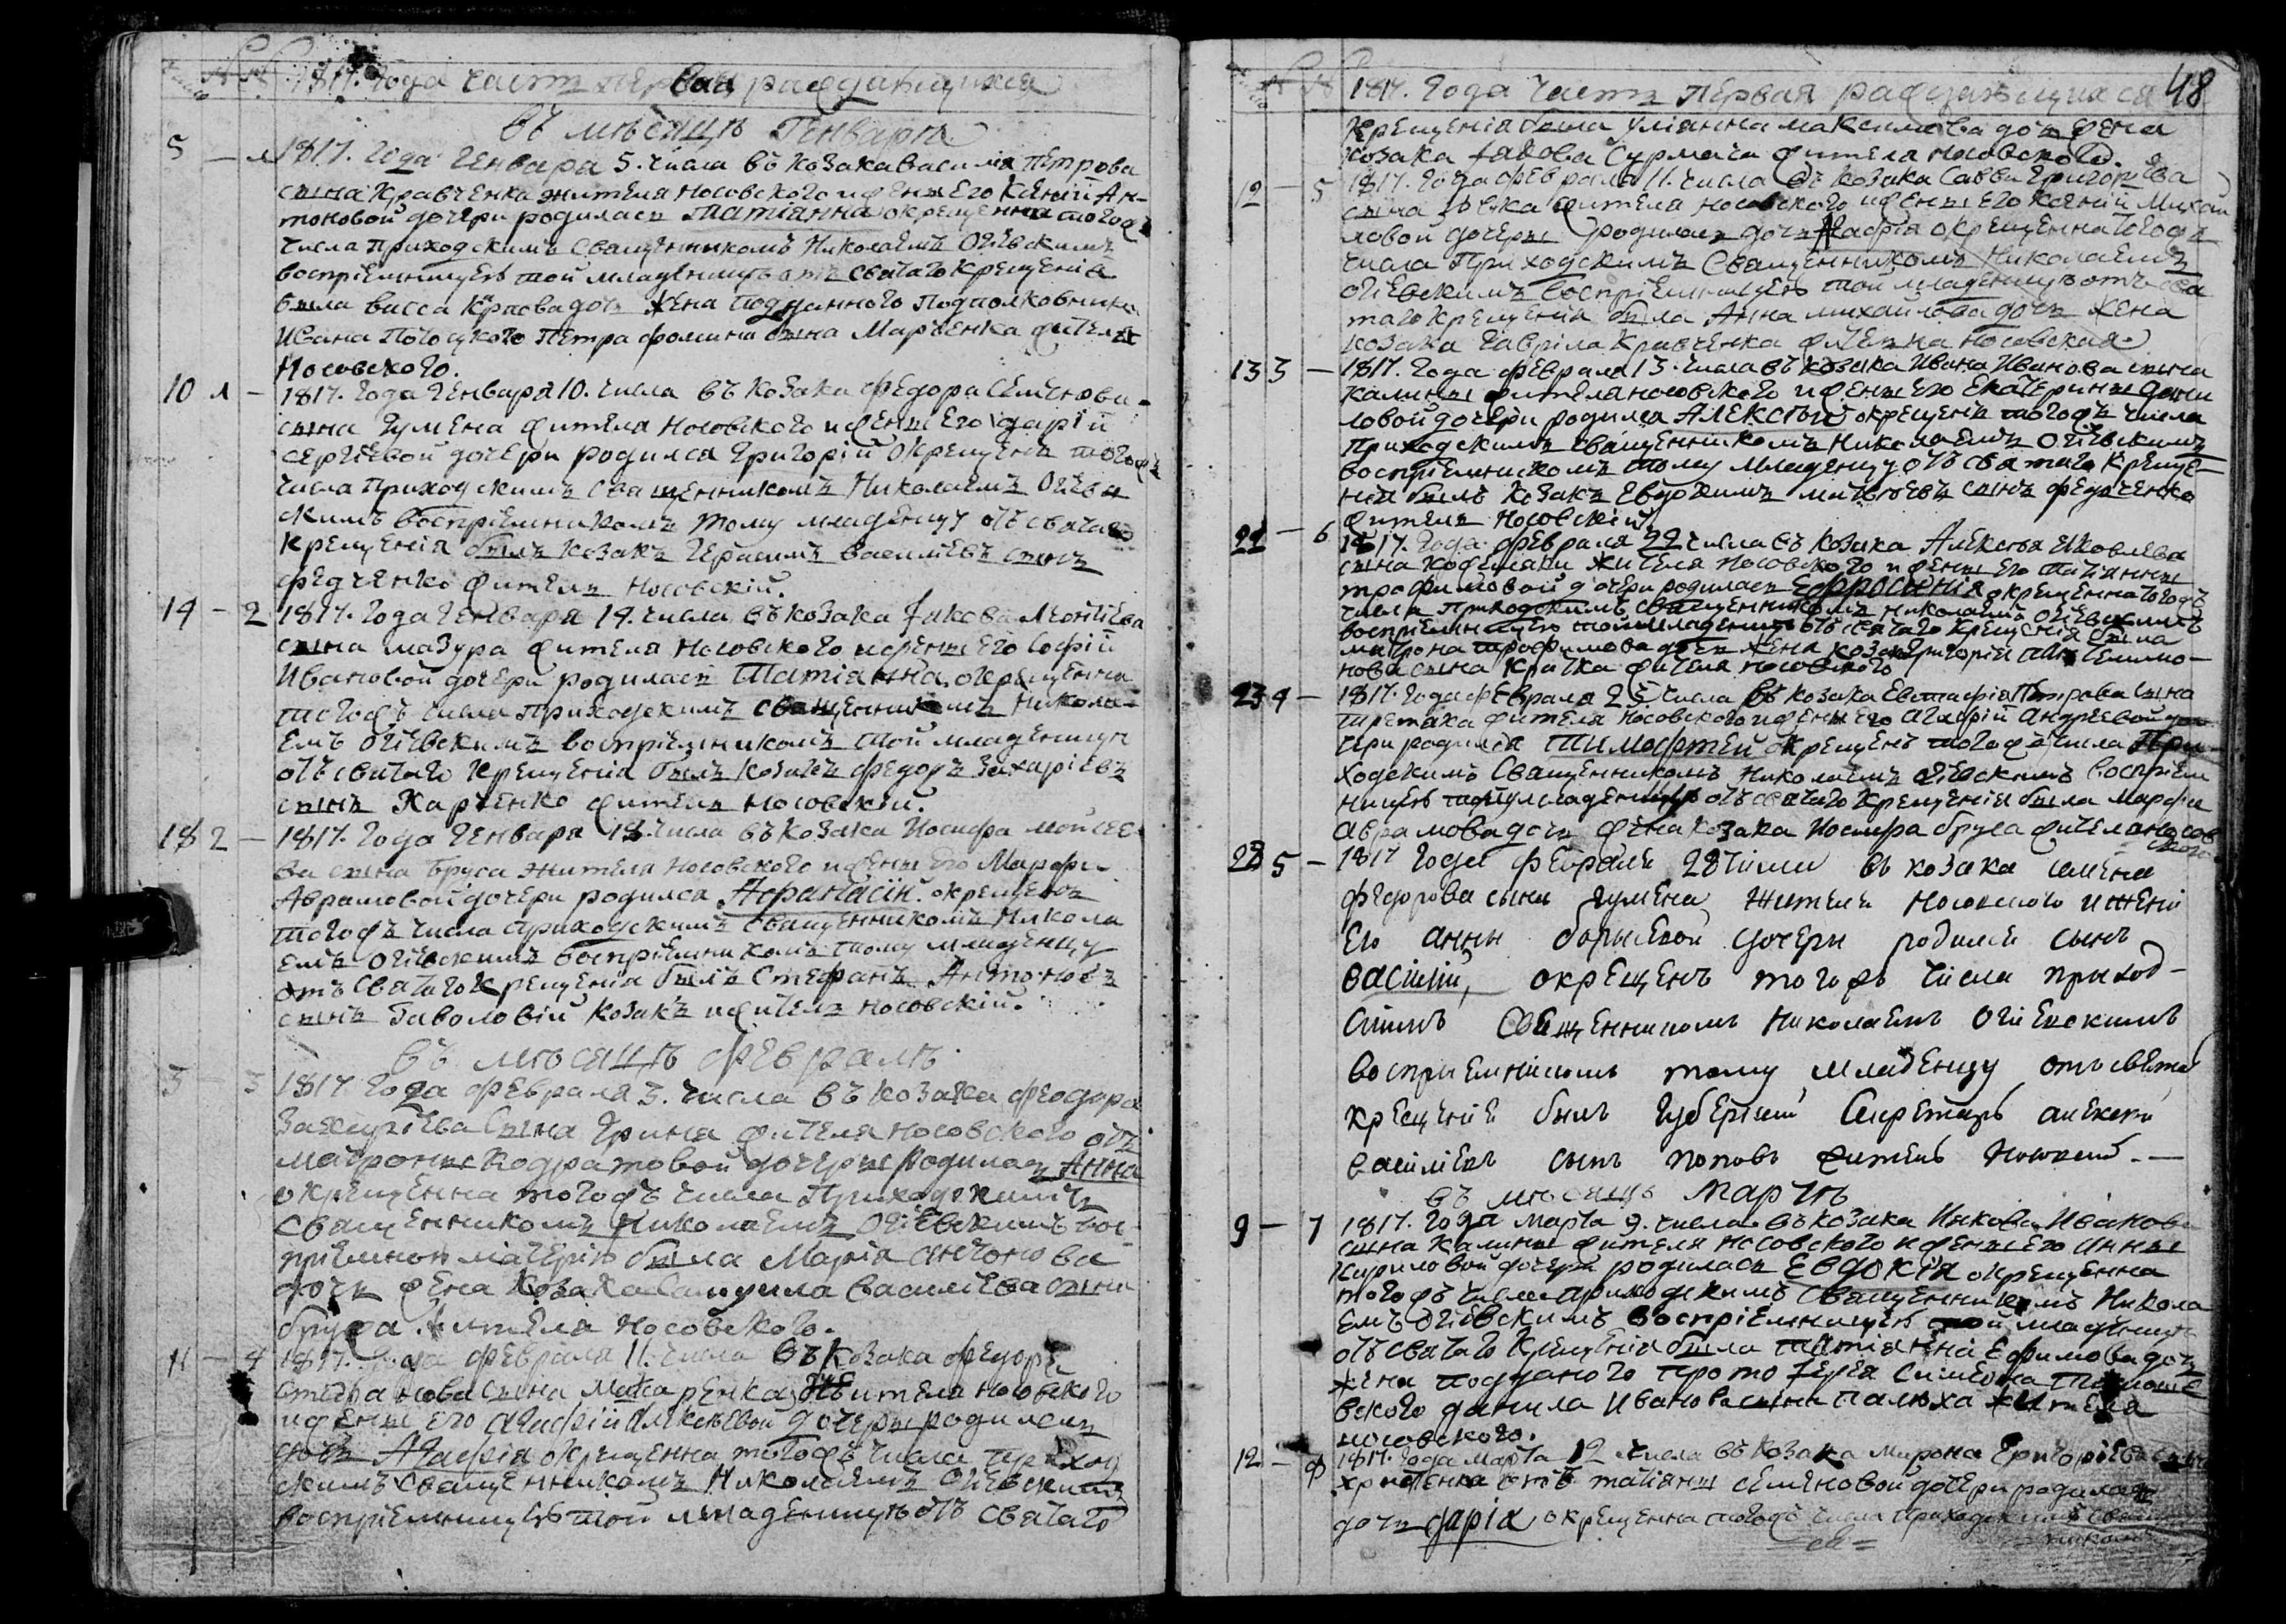 1817. Года часть первая раждающихся
Въ мѣсяцѣ Генварѣ
5 — 1 1817. Года Генвара 5. числа въ козака Василия Петрова
сына Кравченка жителя Носовского и жены Его Ксении Ан-
тоновой дочери родилась Татіанна окрещенна тогожъ
числа приходскимъ Священникомъ Николаемъ Огіевскимъ
воспріемницею той младеницѣ отъ святаго Крещенія
была Васса Карпова дочь жена подданного подполковника
Ивана Потоцкого Петра Фомина сына Марченка жителя
Носовского.
10 1 — 1817. Года Генваря 10. числа въ козака Федора Семенова
сына Гумена жителя Носовского и жены Его Дарій
Сергіевой дочери родился Григорій окрещенъ тогожъ
числа приходскимъ священникомъ Николаемъ Огіев
скимъ воспріемникомъ тому младенцу отъ святаго
крещенія былъ козакъ Герасимъ Василіевъ сынъ
Федченко житель Носовскій.
14 — 2 1817. Года Генваря 14. числа въ козака Іакова Леонтіева
сына Мазура жителя Носовского и жены Его Софій
Ивановой дочери родилась Татіанна окрещенна
тогожъ числа приходскимъ священникомъ Никола-
емъ Огіевскимъ воспріемникомъ той младеницѣ
отъ святаго крещенія былъ козакъ Федоръ Захаріевъ
сынъ Харченко житель Носовскій.
18 2 — 1817. Года Генваря 18. числа въ козака Иосифа Мойсее-
ва сына Бруса жителя Носовского и жены Его Марфы
Аврамовой дочери родился Афанасій окрещенъ
тогожъ числа приходскимъ священникомъ Никола
емъ Огіевскимъ воспріемникомъ тому младенцу
отъ святаго крещенія былъ Стефанъ Антоновъ
сынъ козакъ и житель Носовскій.
въ мѣсяцѣ Февралѣ.
3 — 3 1817 Года Февраля 3. числа въ козака Феодора
Захаріева сына Грина жителя Носовского отъ
Матроны Кодратовой дочеры родилась Анна
окрещенна тогожъ числа Приходскимъ
священникомъ Николаемъ Огіевскимъ вос-
пріемною матерію была Марія Антонова
дочь жена козака Самуила Василіева сына
Бруса жителя Носовского.
11 — 4 1817. Года Февраля 11. числа въ козака Федора
Степанова сына Макаренка жителя Носовского
и жены его Агафій Алексѣевой дочеры родилась
дочь Агафія окрещенна тогожъ числа приход
скимъ священникомъ Николаемъ Огіевскимъ
воспріемницею той младеницѣ отъ святаго
48
1817. Года часть первая раждающихся
Крещенія была Уліянна Максимова дочь жена
козака Іакова Сурмача жителя Носовского.
12 — 5 1817. Года Февраля 11. числа въ козака Саввы Григоріева
сына жителя Носовского и жены Его Ксеній Михай
ловой дочеры родилась дочь Агафія окрещенна тогожъ
числа Приходскимъ Священникомъ Николаемъ
Огіевскимъ воспріемницею той младеницѣ отъ свя
таго крещенія была Анна Михайлова дочь жена
козака Гавріла Кравченка жителна Носовская
13 3 — 1817. Года Февраля 13. числа въ козака Ивана Иванова сына
Калины жителя Носовского и жены Его Екатерины Дани
ловой дочери родился Алексѣй окрещенъ тогожъ числа
Приходскимъ Священникомъ Николаемъ Огіевскимъ
воспріемникомъ тому младенцу отъ святаго креще-
нія былъ козакъ Евдокимъ Матвѣевъ сынъ Федченко
житель Носовскій.
22 — 6 1817. Года Февраля 22 числа въ козака Алексѣя Яковлева
сына жителя Носовского и жены Его Татіанны
Трофимовой дочери родилась Ефросинія окрещенна тогожъ
числа Приходскимъ священникомъ Николаемъ Огіевскимъ
воспріемницею той младеницѣ отъ святаго крещенія была
Матрона Трофимова дочь жена козака Григорія Пантелимо-
нова сына Кратка жителя Носовского
23 4 — 1817. Года Февраля 23 числа въ козака Евстафія Петрова сына
жителя Носовского и жены Его Агафій Андреевой до
чери родился Тимофтей окрещенъ тогожъ числа При
ходскимъ Священникомъ Николаемъ Огіевскимъ воспріем
ницею тому младенцу отъ святаго крещенія была Марфа
Аврамова дочь жена козака Иосифа Бруса жителя Носов
ского
28 5 — 1817 Года Февраля 28 числа въ козака Семена
Федорова сына Гумена жителя Носовского и жены
Его Анны Борисовой дочери родился сынъ
Василій, окрещенъ тогожъ числа приход-
скимъ Священникомъ Николаемъ Огіевскимъ
воспріемникомъ тому младенцу отъ святаго
крещенія былъ Губернский Секретарь Алексей
Василіевъ сынъ Поповъ житель Носовский. —
въ мѣсяцѣ Мартѣ
9 — 7 1817. Года Марта 9. числа въ козака Иякова Иванова
сына Калины жителя Носовского и жены Его Анны
Кириловой дочери родилась Евдокія окрещенна
тогожъ числа приходскимъ Священникомъ Никола
емъ Огіевскимъ воспріемницею той младеницѣ
отъ святаго крещенія была Татіянна Ефимова дочь
жена подданого протоіерея Симеона
вского Данила Иванова сына Палюха жителя
Носовского.
12 — 1817. Года Марта 12 числа въ козака Мирона Григоріева сына
отъ Татіяны Семеновой дочери родилась
дочь Дарія окрещенна тогожъ числа приходскимъ свя
щенникомъ